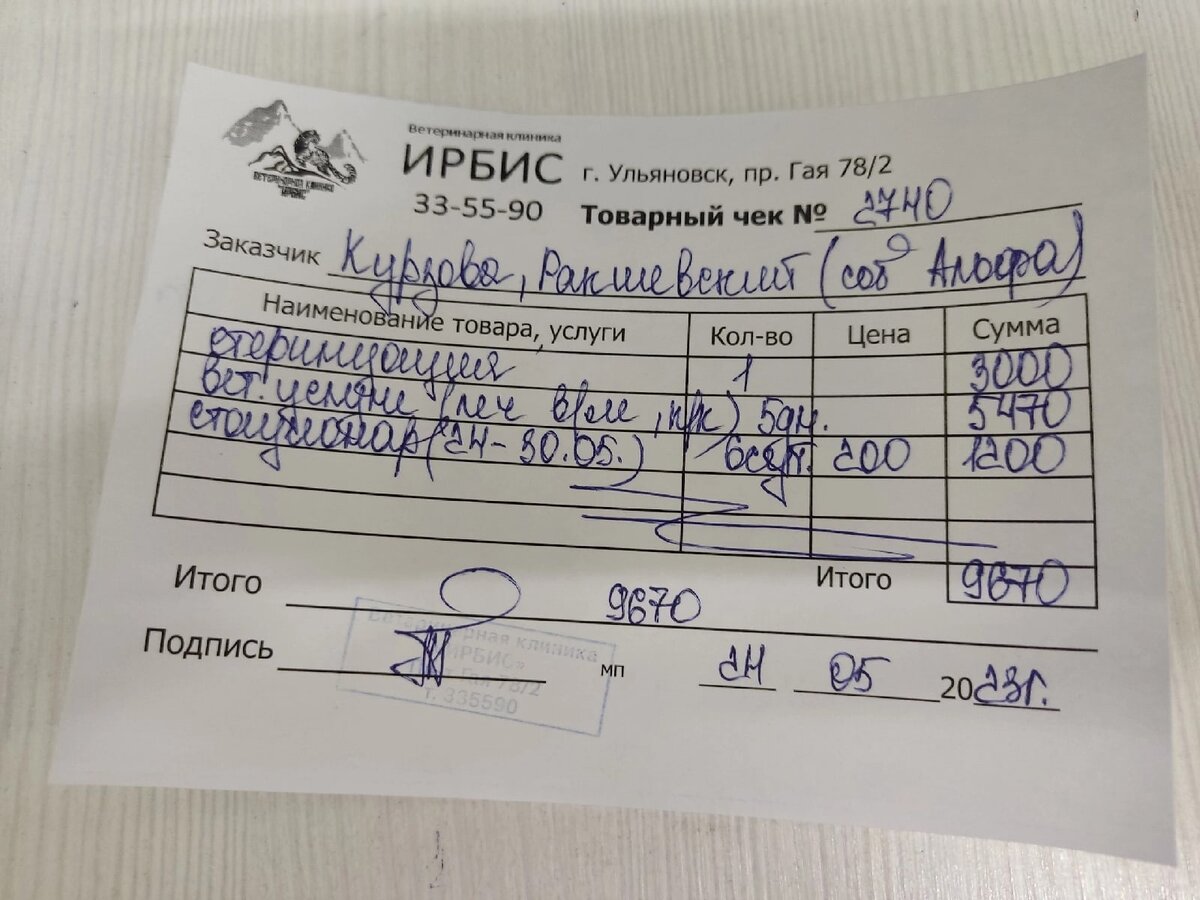 Ветеринарная клиника
ИРБИС г. Ульяновск, пр. Гая 78/2
ВЕТЕРИНАРНАЯ КЛИНИКА
"ИРБИС"
33-55-90 Товарный чек № 2740
Заказчик Курзова, (соб Альфа)
Наименование товара, услуги Кол-во Цена Сумма
1 3000
вет. в/м, п/к) 5дн. 5470
стационар (24-30.05.) 6сут. 200 1200
Итого 9670
Итого 9670
Подпись мп 24 05 2023г.
Ветеринарная клиника
«ИРБИС»
пр-т Гая 78/2
т. 335590